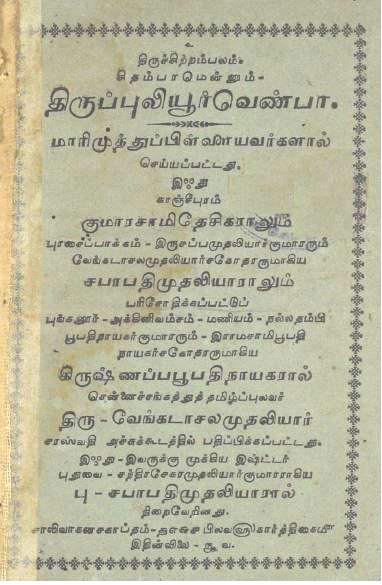 உ
திருச்சிற்றம்பலம்.
சிதம்பரமென்னும்-
திருப்புலியூர்வெண்பா.
மாரிமுத்துப்பிள்ளையவர்களால்
செய்யப்பட்டது.
இஃது
காஞ்சீபுரம்
குமாரசாமிதேசிகராலும்
புரசைப்பாக்கம் - இருசப்பமுதலியார்குமாரரும்
வேங்கடாசலமுதலியார்சகோதரருமாகிய
சபாபதிமுதலியாராலும்
பரிசோதிக்கப்பட்டுப்
புங்கனூர் - அக்கினிவம்சம் - மணியம் - நல்லதம்பி
பூபதிநாயகர்குமாரரும் - இராமசாமிபூபதி
நாயகர்சகோதரருமாகிய
கிருஷ்ணப்பபூபதிநாயகரால்
சென்னைச்சங்கத்துத்தமிழ்ப்புலவர்
திரு - வேங்கடாசலமுதலியார்
சரஸ்வதி அச்சுக்கூடத்தில் பதிப்பிக்கப்பட்டது.
இஃது - இவருக்கு முக்கிய இஷ்டர்
புதுவை - சந்திரசேகரமுதலியார்குமாரராகிய
பு - சபாபதிமுதலியாரால்
நிறைவேறினது.
சாலிவாகனசகாப்தம் - பிலவ௵ கார்த்திகை௴
இதின்விலை - வ.